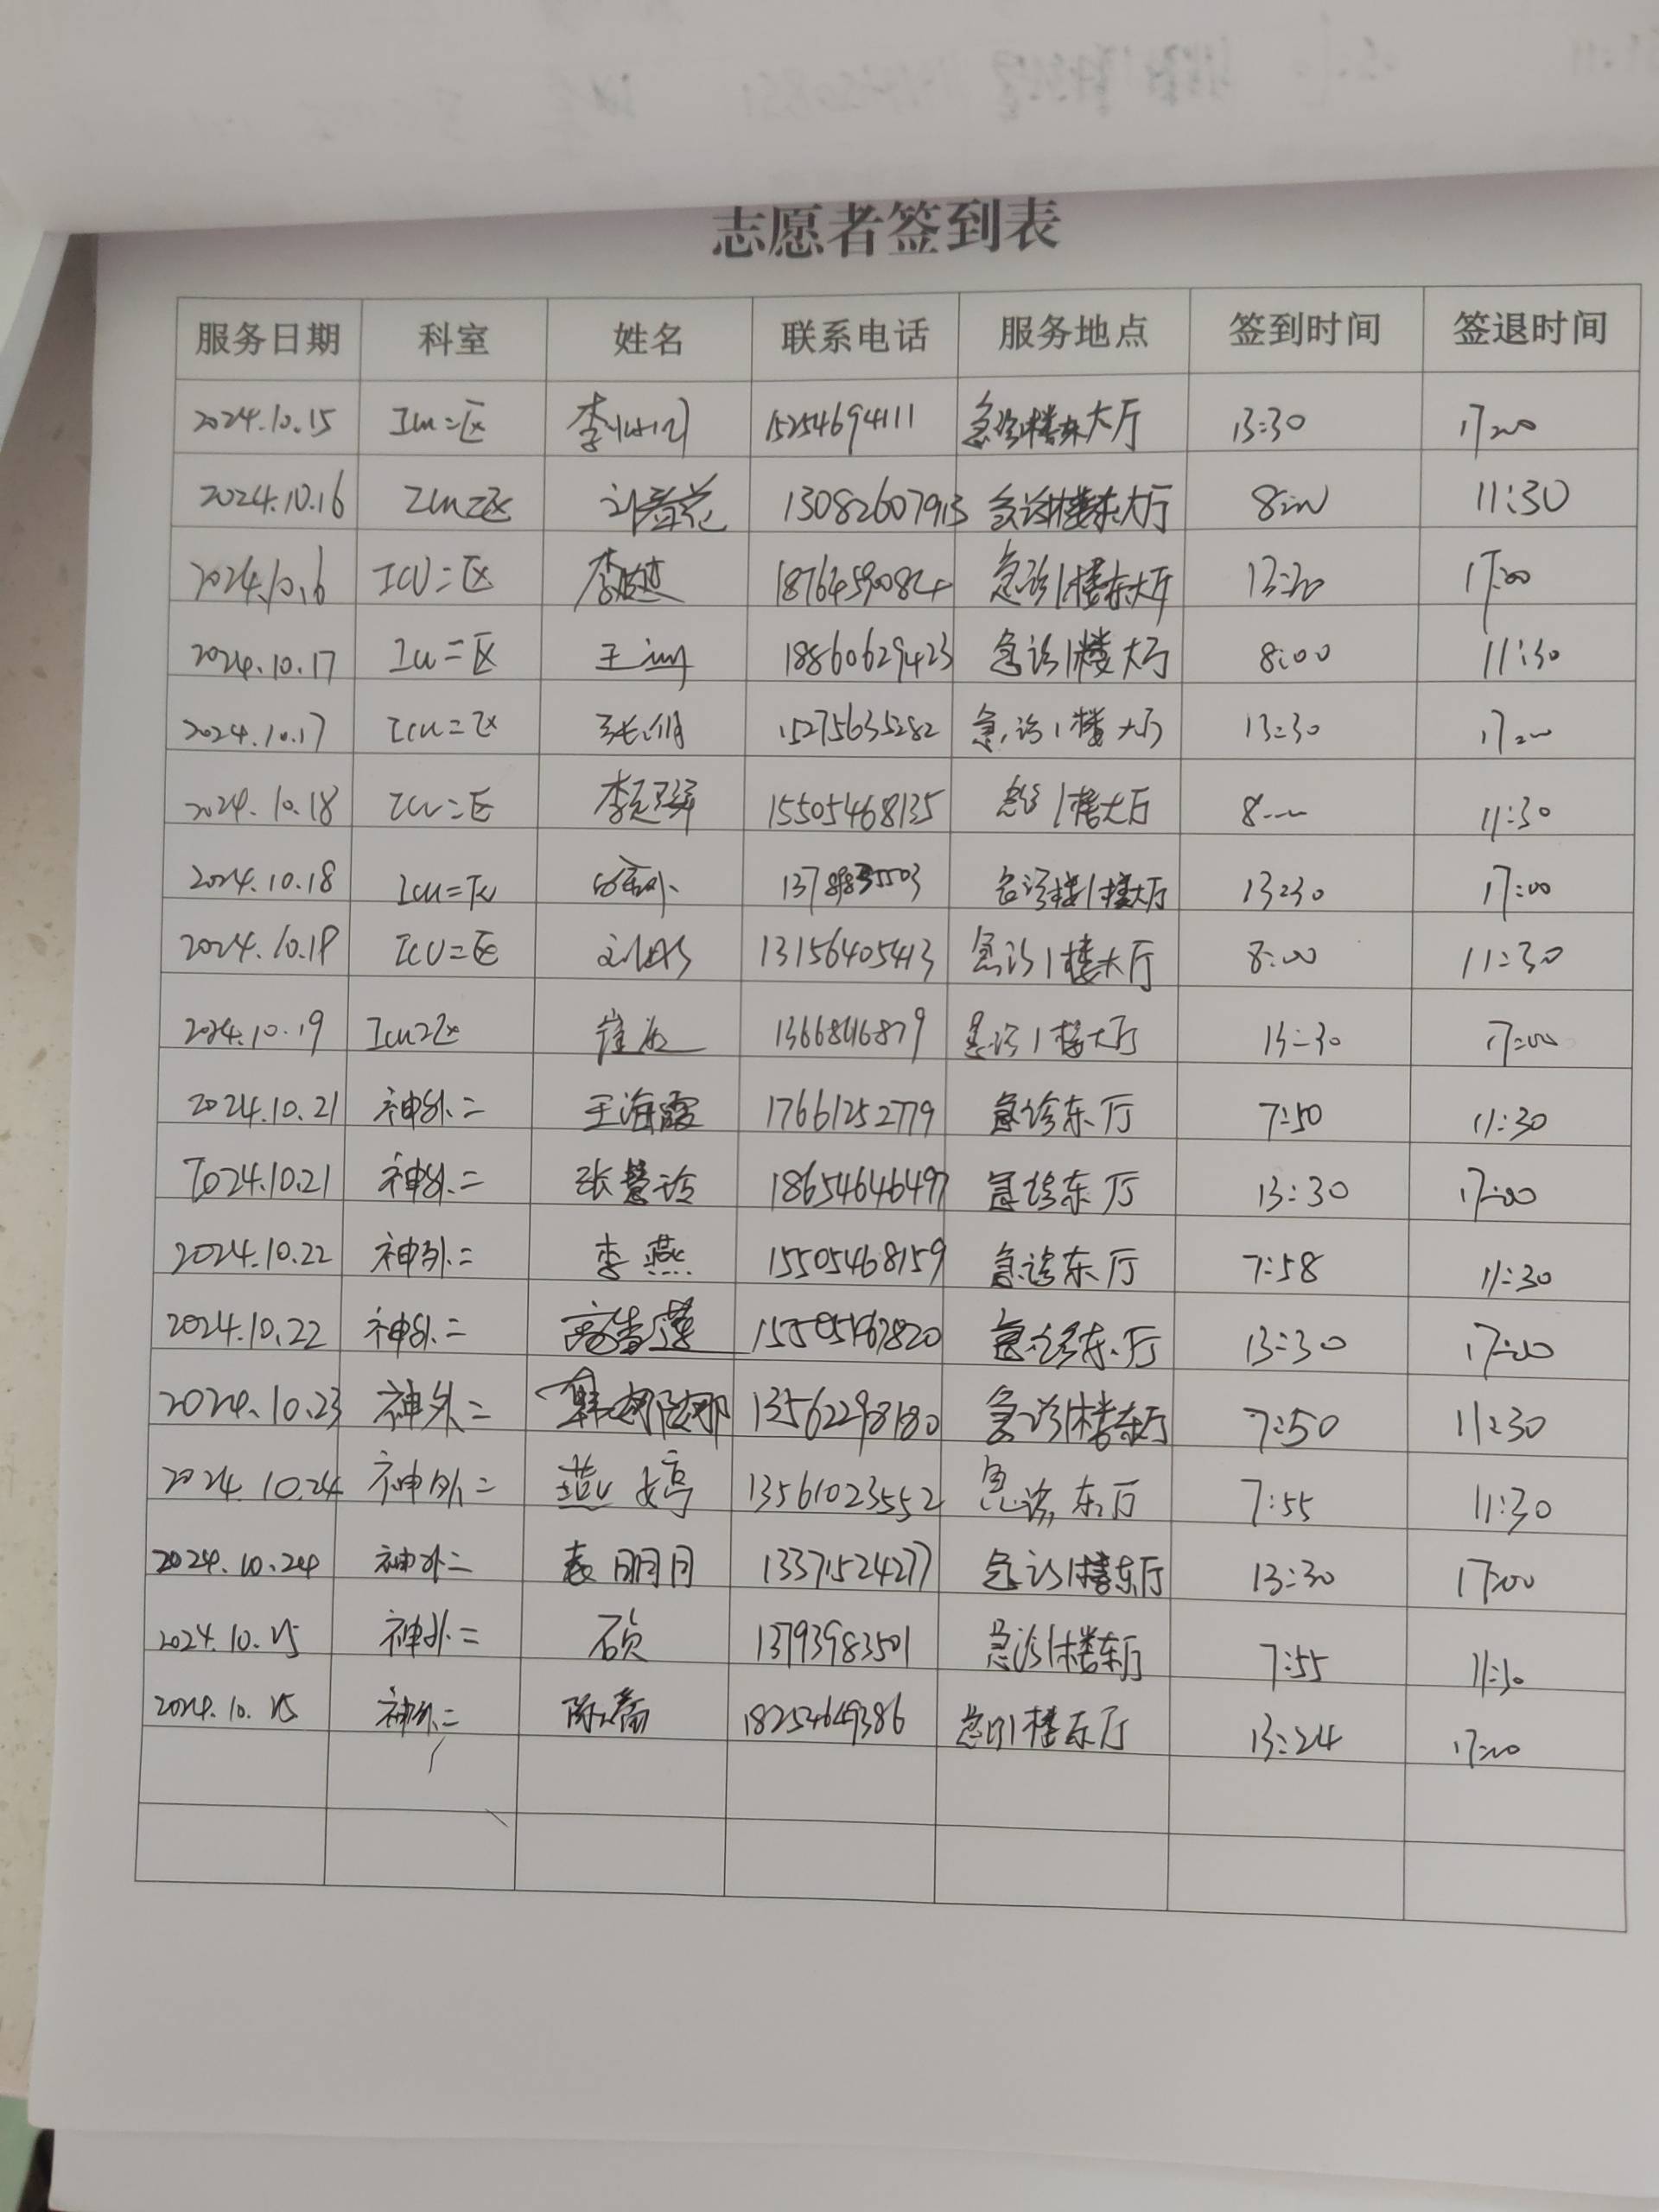 志愿者签到表
服务日期 科室 姓名 联系电话 服务地点 签到时间 签退时间
2024.10.15 Icu二区 李 15254694111 急诊楼东大厅 13:30 17:00
2024.10.16 Icu二区 刘 13082607913 急诊1楼东大厅 8:00 11:30
2024.10.16 ICU二区 李 18764590824 急诊1楼东大厅 13:30 17:00
2024.10.17 Icu二区 王 18860629423 急诊1楼大厅 8:00 11:30
2024.10.17 Icu二区 张 15275635282 急诊1楼大厅 13:30 17:00
2024.10.18 Icu二区 李 15505468135 急诊1楼大厅 8:00 11:30
2024.10.18 Icu二区 急诊楼1楼大厅 13:30 17:00
2024.10.19 ICU二区 刘 13156405413 急诊1楼大厅 8:00 11:30
2024.10.19 Icu二区 崔 急诊1楼大厅 13:30 17:00
2024.10.21 神外二 王海霞 17661252779 急诊东厅 7:50 11:30
2024.10.21 神外二 张慧玲 18654646497 急诊东厅 13:30 17:00
2024.10.22 神外二 李燕 15505468159 急诊东厅 7:58 11:30
2024.10.22 神外二 高 急诊东厅 13:30 17:00
2024.10.23 神外二 韩 娜 13562298180 急诊1楼东厅 7:50 11:30
2024.10.24 神外二 燕婷 13561023552 急诊东厅 7:55 11:30
2024.10.24 神外二 袁明月 13371524277 急诊1楼东厅 13:30 17:00
2024.10.25 神外二 石贞 13793983501 急诊1楼东厅 7:55 11:30
2024.10.25 神外二 陈 18254649386 急诊1楼东厅 13:24 17:00